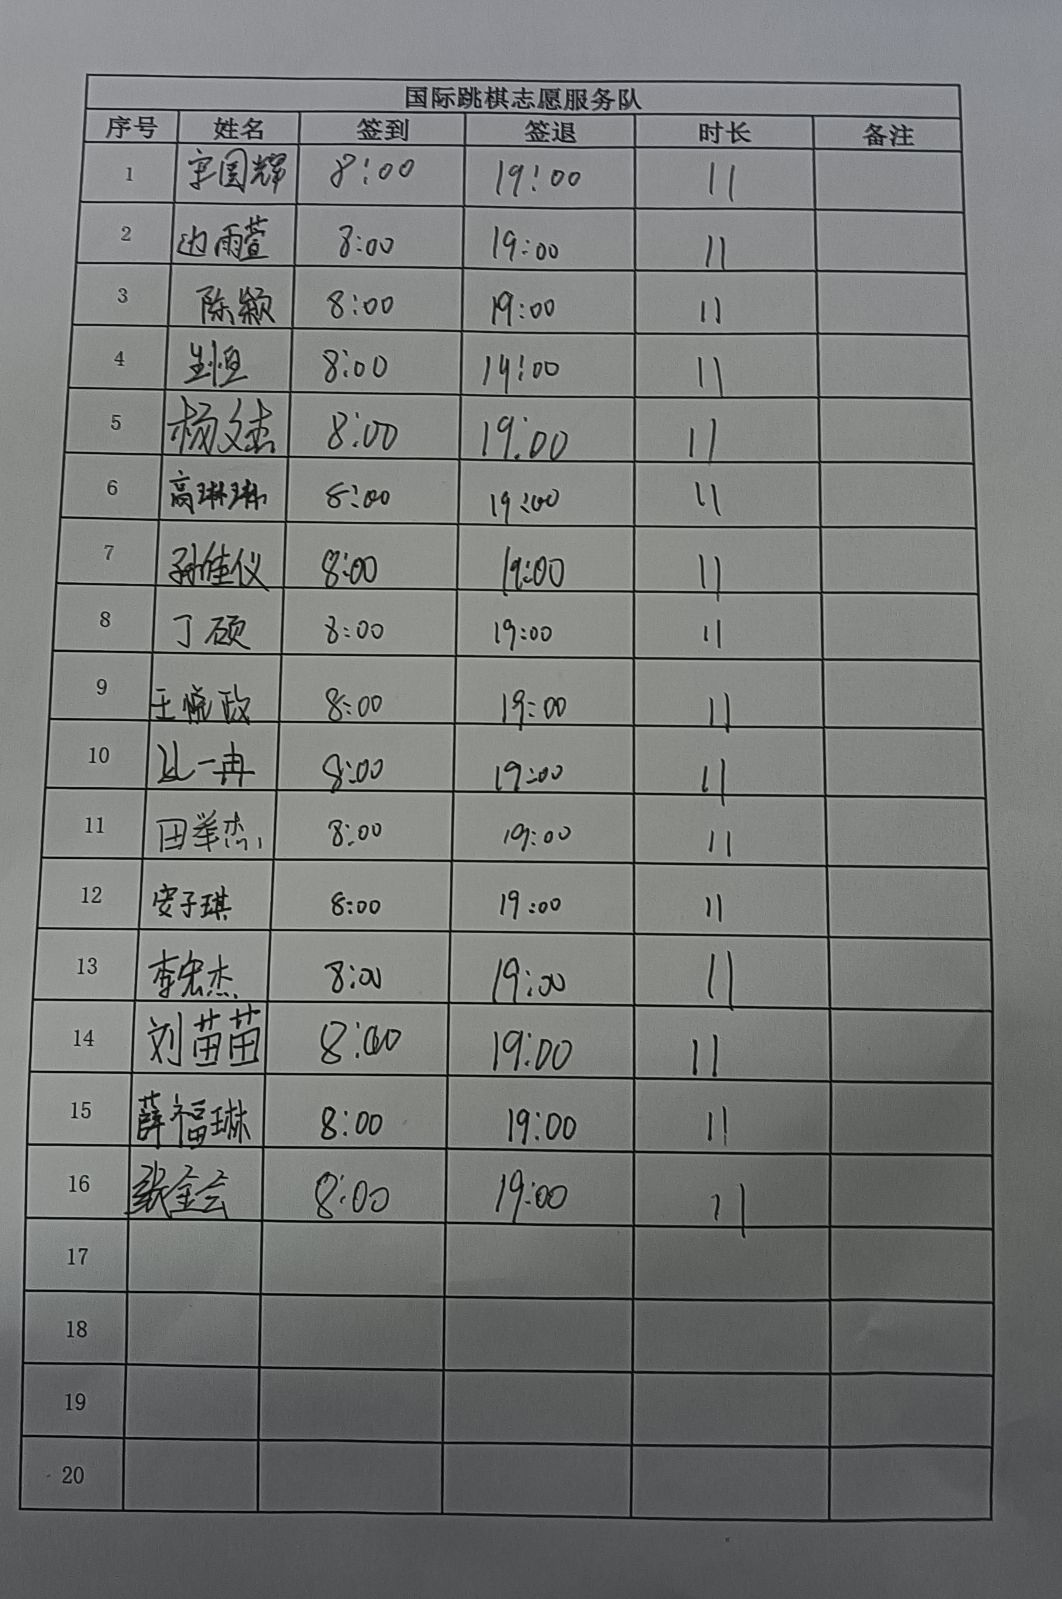 国际跳棋志愿服务队
序号 姓名 签到 签退 时长 备注
1 国辉 8:00 19:00 11
2 边雨萱 8:00 19:00 11
3 陈颖 8:00 19:00 11
4 恒 8:00 19:00 11
5 杨文杰 8:00 19:00 11
6 高琳琳 8:00 19:00 11
7 孙佳仪 8:00 19:00 11
8 丁硕 8:00 19:00 11
9 王悦政 8:00 19:00 11
10 一冉 8:00 19:00 11
11 田举杰 8:00 19:00 11
12 安子琪 8:00 19:00 11
13 李宏杰 8:00 19:00 11
14 刘苗苗 8:00 19:00 11
15 薛福琳 8:00 19:00 11
16 张金会 8:00 19:00 11
17
18
19
20